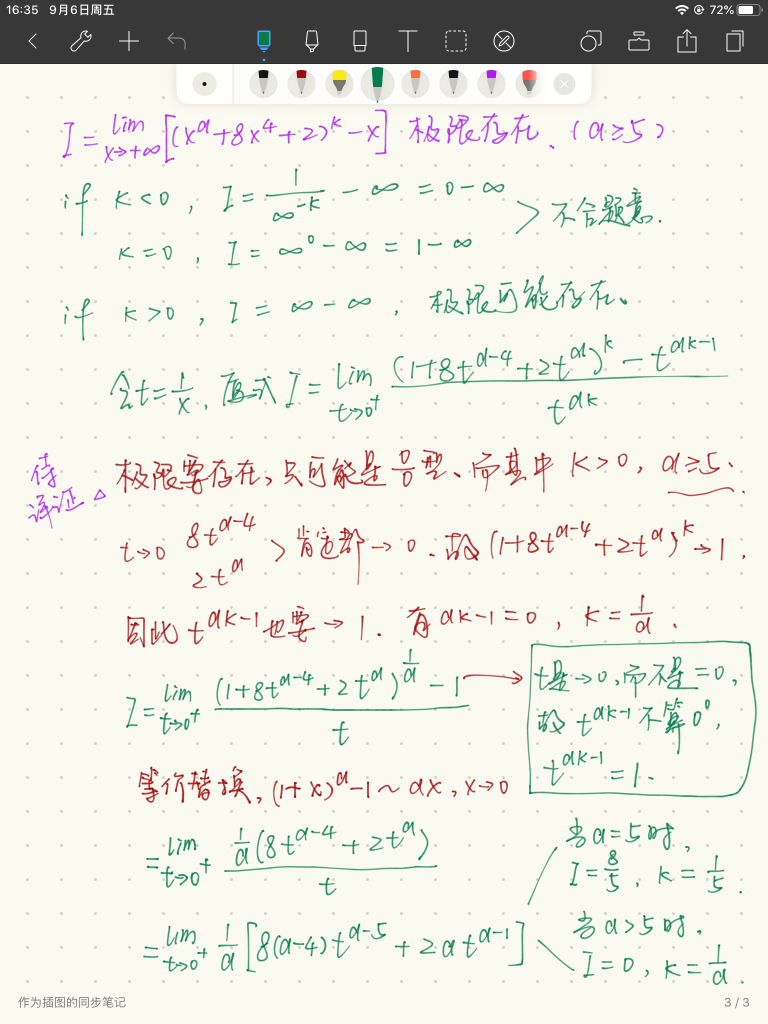 16:35 9月6日周五 72%
I = lim x→+∞ [(x^a+8x^4+2)^k - x] 极限存在. (a≥5)
if k<0, I = 1/∞^-k - ∞ = 0-∞
> 不合题意.
k=0, I = ∞^0 - ∞ = 1-∞
if k>0, I = ∞-∞, 极限可能存在。
令t=1/x, 原式 I = lim t→0^+ ((1+8t^(a-4)+2t^a)^k - t^(ak-1))/t^(ak)
待
详证 △
极限要存在,只可能是 0/0 型、而其中 k>0, a≥5.
t→0 8t^(a-4)
2t^a
> 肯定都→0. 故 (1+8t^(a-4)+2t^a)^k→1.
因此 t^(ak-1) 也要→1. 有 ak-1=0, k=1/a.
I = lim t→0^+ ((1+8t^(a-4)+2t^a)^(1/a) - 1)/t
t是→0,而不是=0,
故 t^(ak-1) 不算 0^0,
t^(ak-1) = 1.
等价替换, (1+x)^a-1~ax, x→0
= lim t→0^+ (1/a (8t^(a-4)+2t^a))/t
当a=5时,
I=8/5, k=1/5.
= lim t→0^+ 1/a [8(a-4)t^(a-5) + 2at^(a-1)]
当a>5时.
I=0, k=1/a.
作为插图的同步笔记
3 / 3